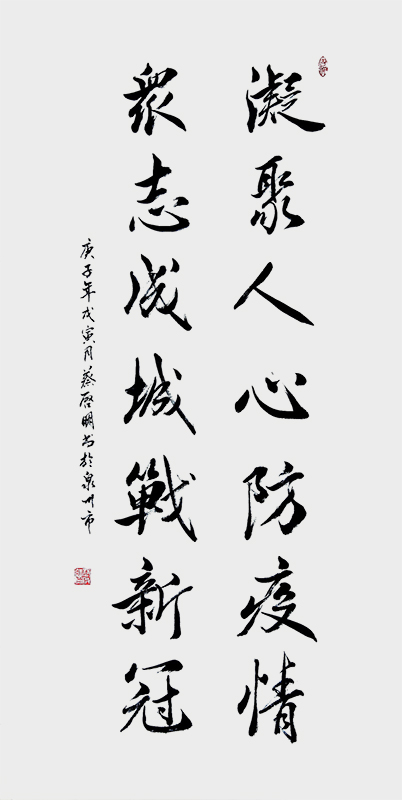 凝聚人心防疫情
眾志成城戰新冠
庚子年戊寅月蔡啓明書於泉州市